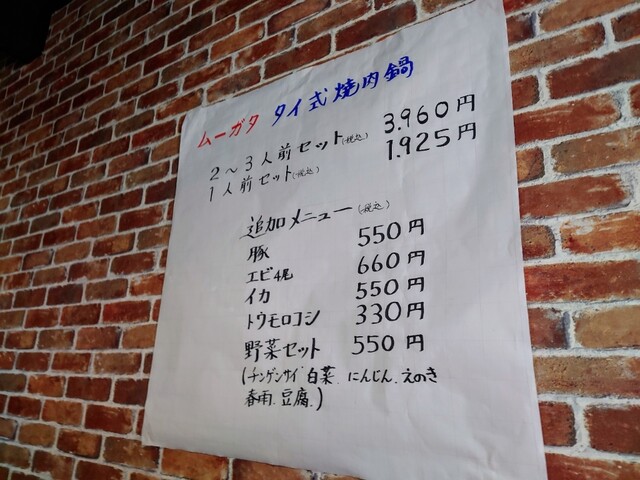 ムーガタ タイ式焼肉鍋
2〜3人前セット(税込) 3.960円
1人前セット(税込) 1.925円
追加メニュー(税込)
豚 550円
エビ4尾 660円
イカ 550円
トウモロコシ 330円
野菜セット 550円
(チンゲンサイ 白菜. にんじん. えのき
春雨. 豆腐.)